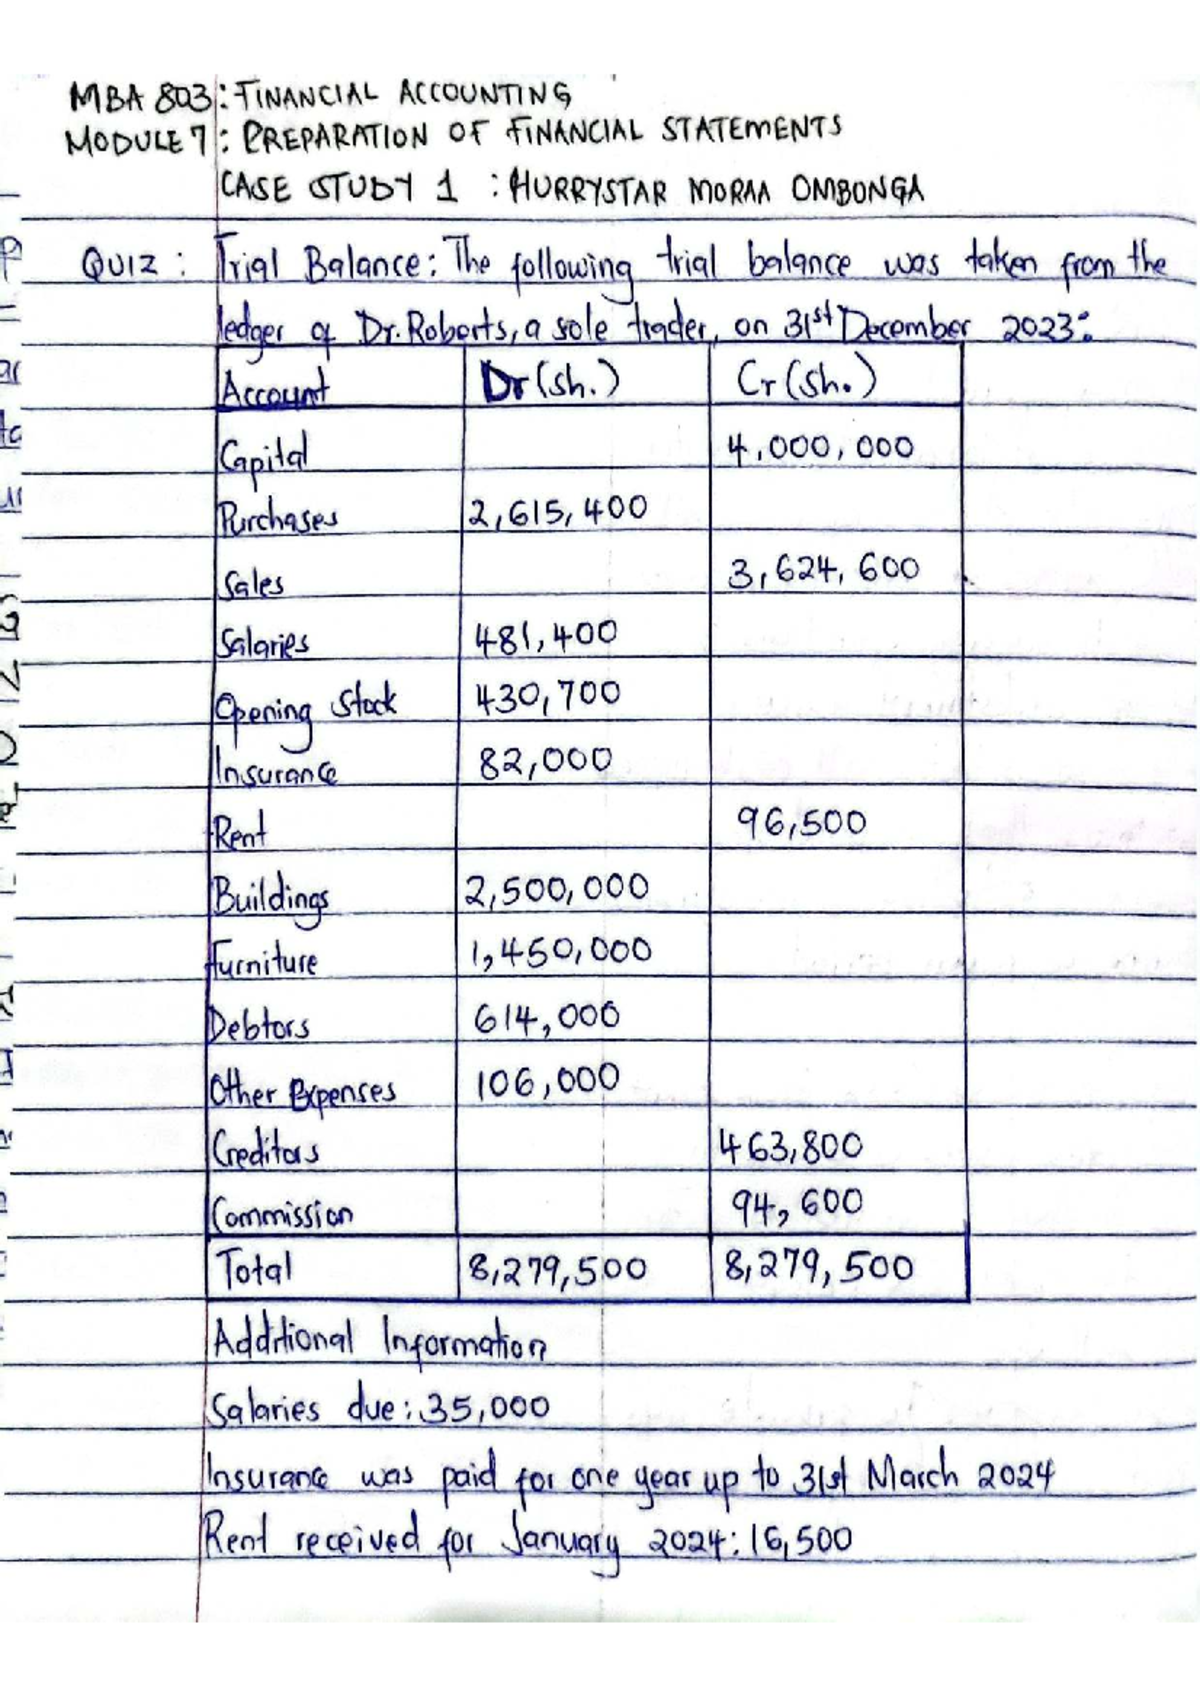 MBA 803: FINANCIAL ACCOUNTING
MODULE 7: PREPARATION OF FINANCIAL STATEMENTS
CASE STUDY 1 : HURRYSTAR MORAA OMBONGA
QUIZ : Trial Balance: The following trial balance was taken from the
ledger of Dr. Roberts, a sole trader, on 31st December 2023:
Account Dr (sh.) Cr (sh.)
Capital 4,000,000
Purchases 2,615,400
Sales 3,624,600
Salaries 481,400
Opening Stock 430,700
Insurance 82,000
Rent 96,500
Buildings 2,500,000
Furniture 1,450,000
Debtors 614,000
Other Expenses 106,000
Creditors 463,800
Commission 94,600
Total 8,279,500 8,279,500
Additional Information
Salaries due: 35,000
Insurance was paid for one year up to 31st March 2024
Rent received for January 2024: 16,500